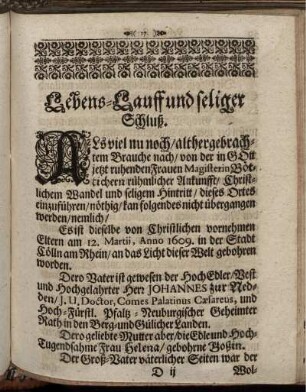 17.
Lebens-Lauff und seliger
Schluß.
ALs viel nu noch / althergebrach-
tem Brauche nach / von der in GOtt
jetzt ruhenden Frauen Magisterin Böt-
tichern rühmlicher Ankunfft / Christ-
lichem Wandel und seligem Hintritt / dieses Ortes
einzuführen / nöthig / kan folgendes nicht übergangen
werden / nemlich /
Es ist dieselbe von Christlichen vornehmen
Eltern am 12. Martii, Anno 1609. in der Stadt
Cölln am Rhein / an das Licht dieser Welt gebohren
worden.
Dero Vater ist gewesen der HochEdler / Vest
und Hochgelahrter Herr JOHANNES zur Ned-
den / J. U. Doctor, Comes Palatinus Cæsareus, und
Hoch-Fürstl. Pfaltz-Neuburgischer Geheimter
Rath in den Berg- und Gülicher Landen.
Dero geliebte Mutter aber / die Edle und Hoch-
Tugendsahme Frau Helena / gebohrne Goßin.
Der Groß-Vater väterlicher Seiten war der
D ij
Wol-